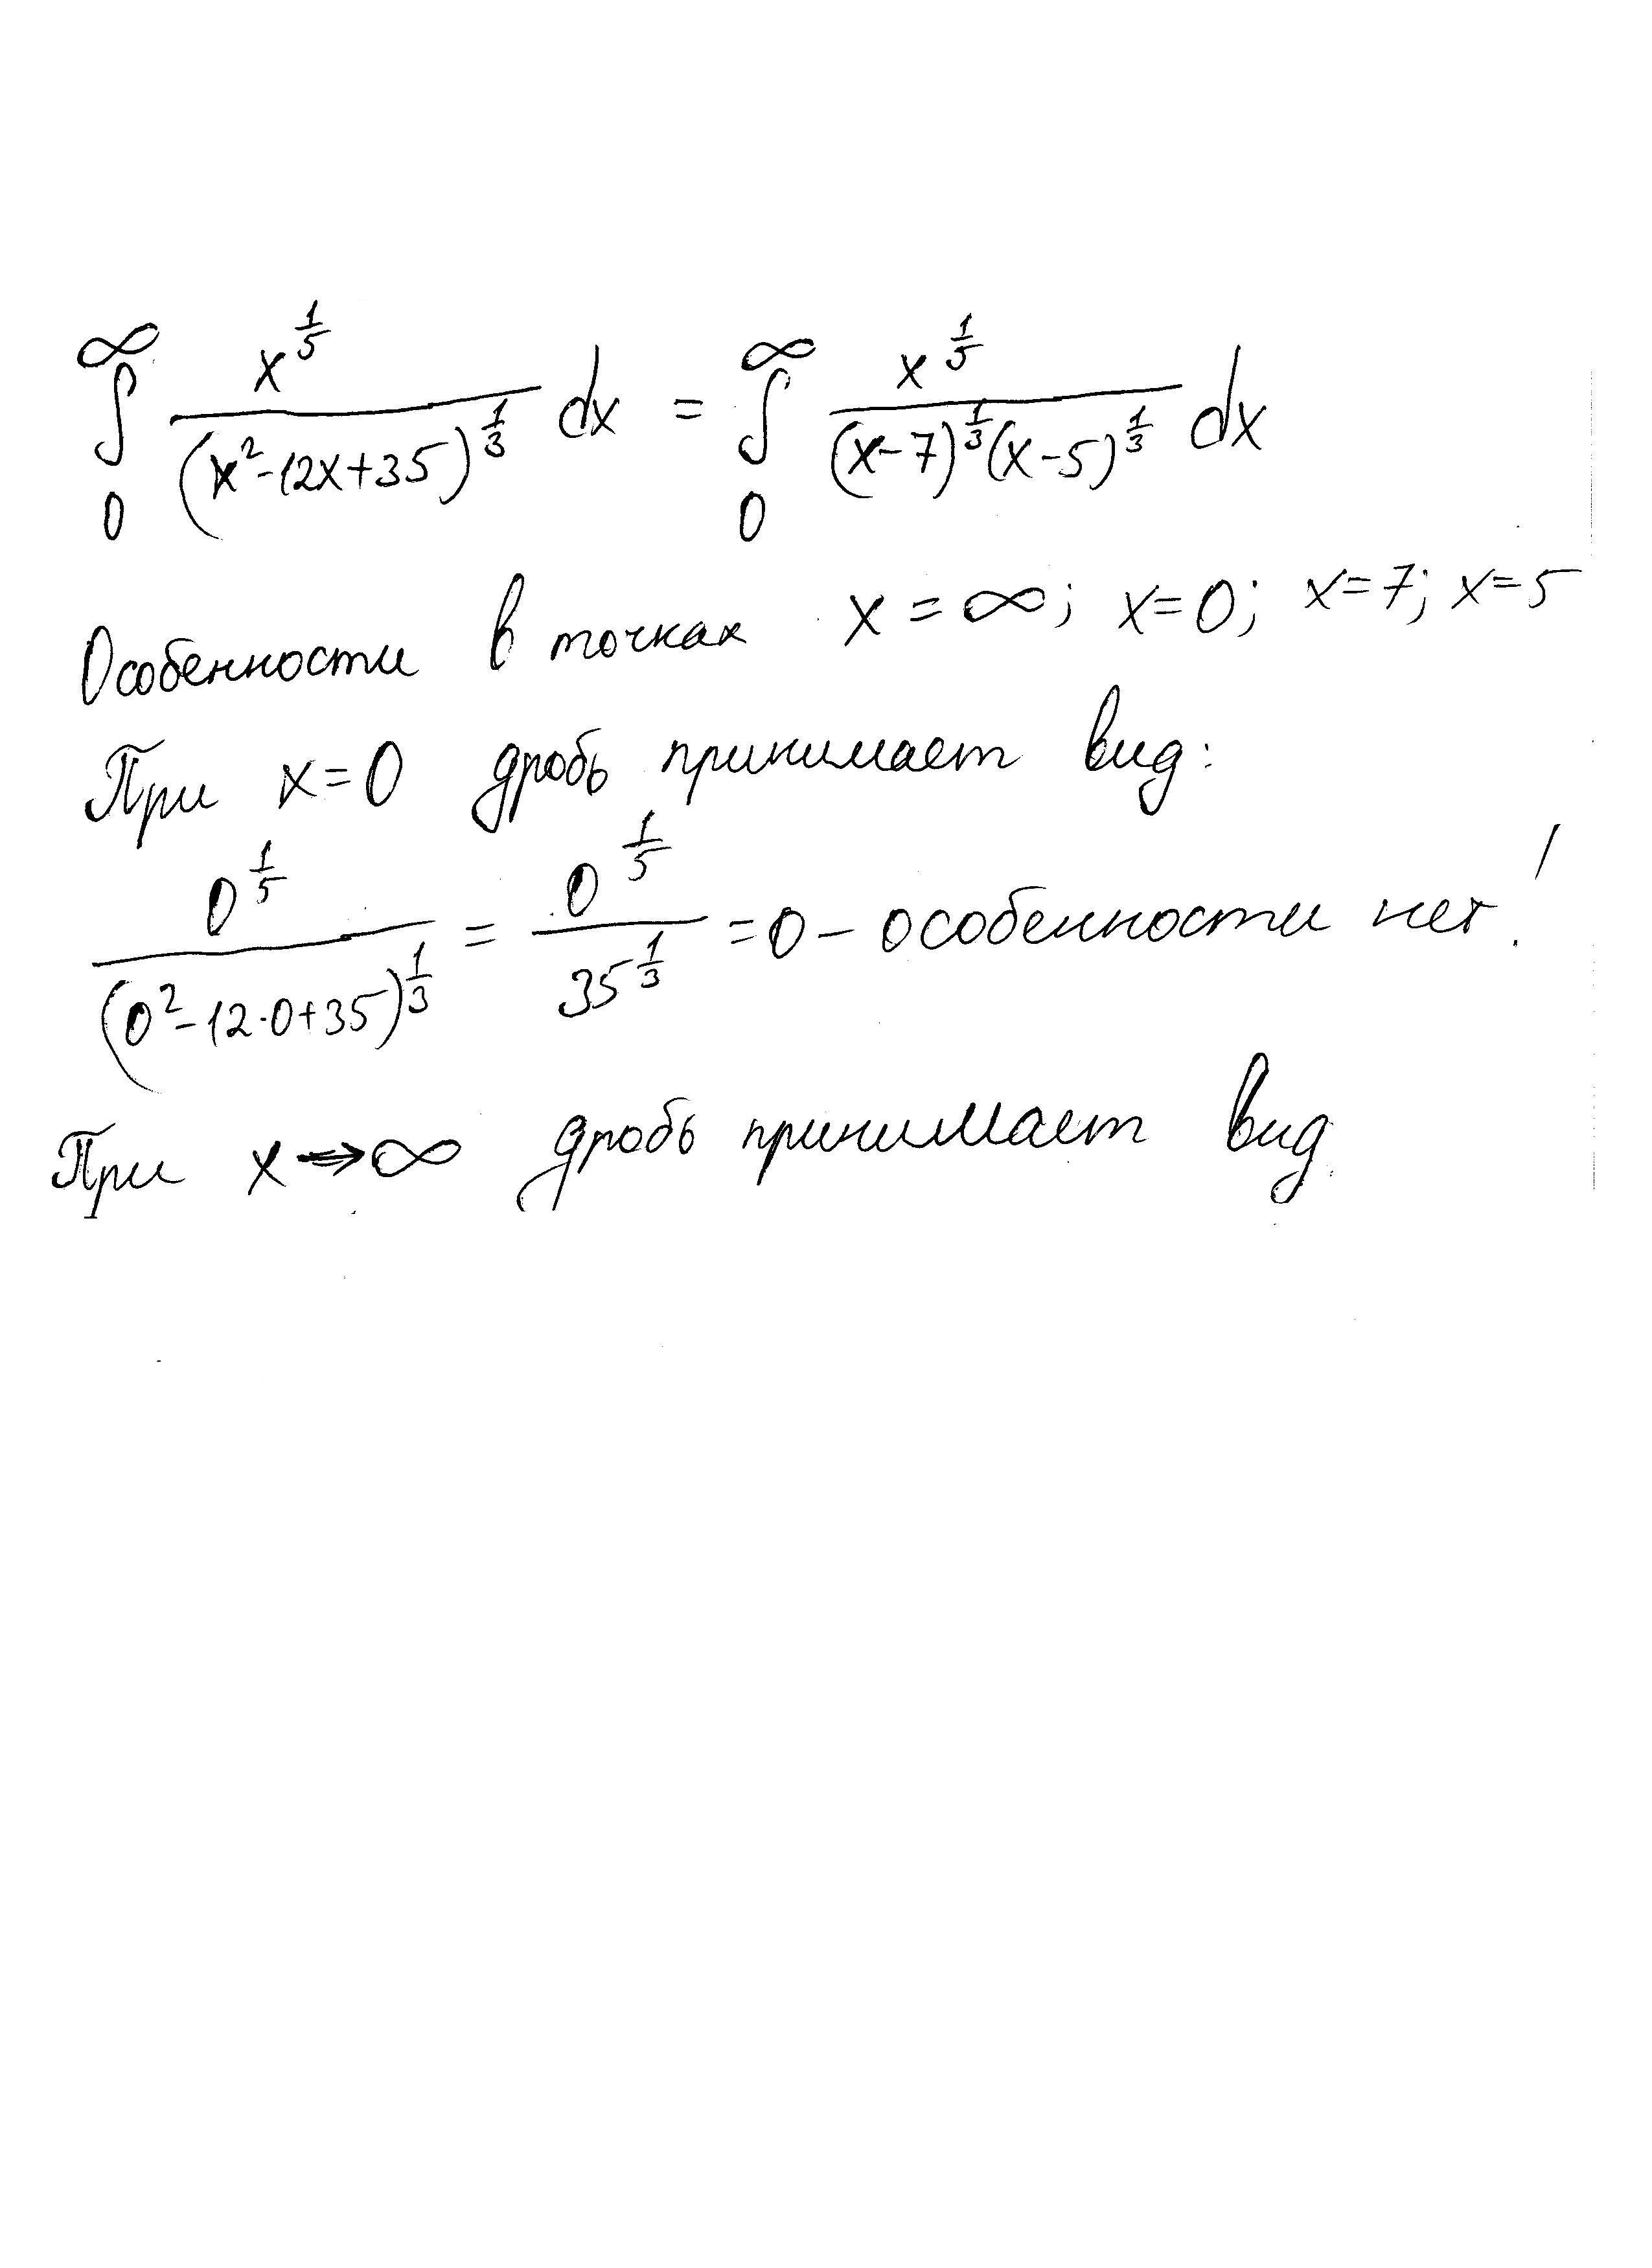 ∫₀^∞ x^(1/5) / (x²-12x+35)^(1/3) dx = ∫₀^∞ x^(1/5) / ((x-7)^(1/3)(x-5)^(1/3)) dx
Особенности в точках x = ∞; x=0; x=7; x=5
При x=0 дробь принимает вид:
0^(1/5) / (0²-12·0+35)^(1/3) = 0^(1/5) / 35^(1/3) = 0 - особенности нет!
При x→∞ дробь принимает вид